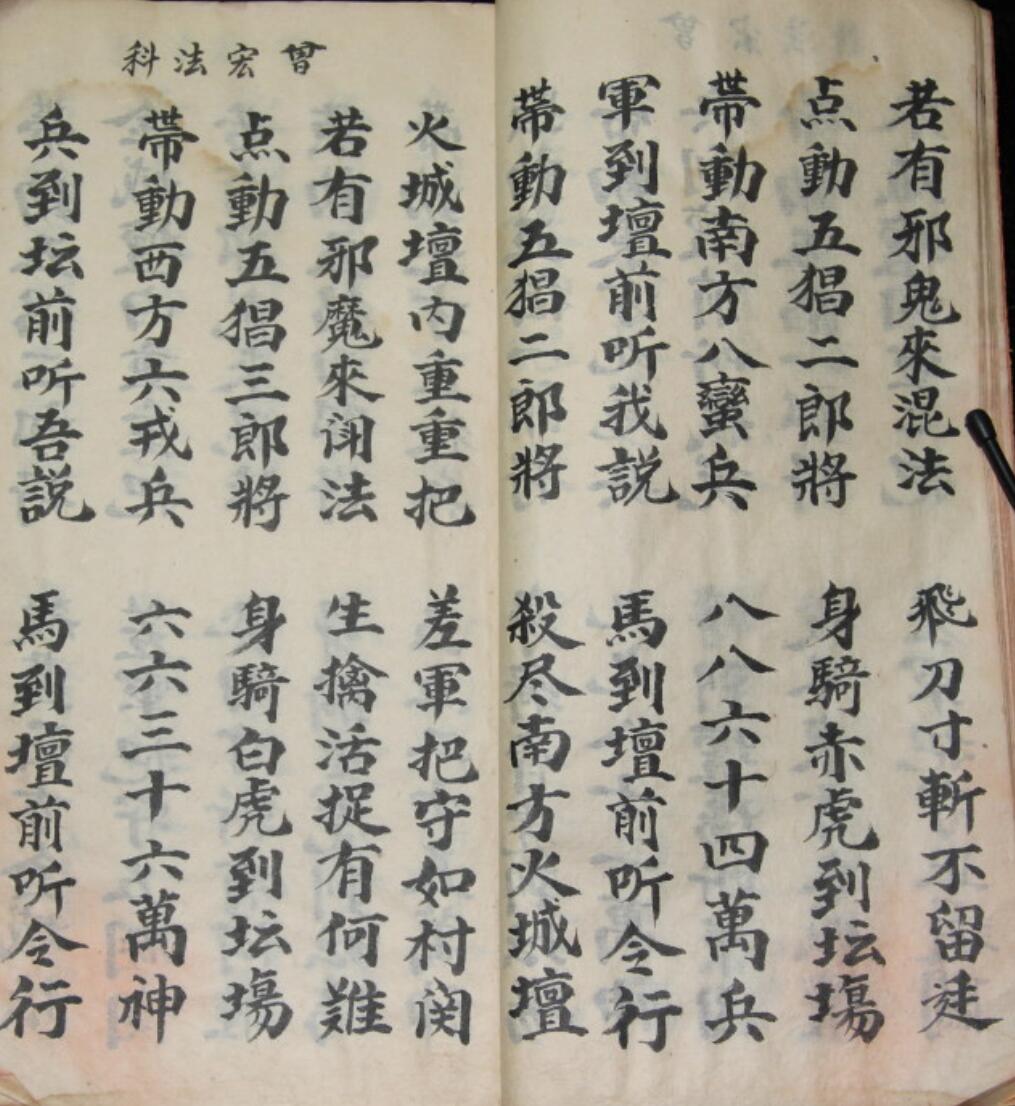 若有邪鬼來混法 飛刀寸斬不留迋
点動五猖二郎將 身騎赤虎到坛塲
帶動南方八蠻兵 八八六十四萬兵
軍到壇前听我説 馬到壇前听令行
帶動五猖二郎將 殺尽南方火城壇
曾宏法科
火城壇内重重把 差軍把守如村関
若有邪魔來闭法 生擒活捉有何難
点動五猖三郎將 身騎白虎到坛塲
帶動西方六戎兵 六六三十六萬神
兵到坛前听吾説 馬到壇前听令行